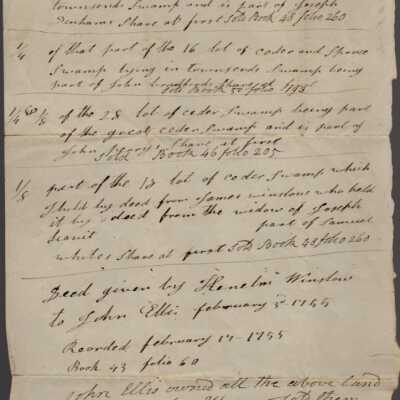 townsends Swamp and is part of Joseph
Benhams Share at first Sold Book 48 folio 260
1/4 of that part of the 16 lot of ceder and Spruce
Swamp lying in townsends Swamp being
part of John
Sold Book 55 folio
1/4 & 1/8 of the 28 lot of ceder Swamp being part
of the great ceder Swamp and is part of
John Share at first
Sold Book 46 folio 205
1/8 part of the 18 lot of ceder Swamp which
I huld by deed from James winslow who held
it by deed from the widow of Joseph
part of Samuel
whites Share at first Sold Book 48 folio 260
Deed given by Kenelm Winslow
to John Ellis february 3d 1755
Recorded february 17 - 1755
Book 43 folio 60
John Ellis owned all the above land
Sold them